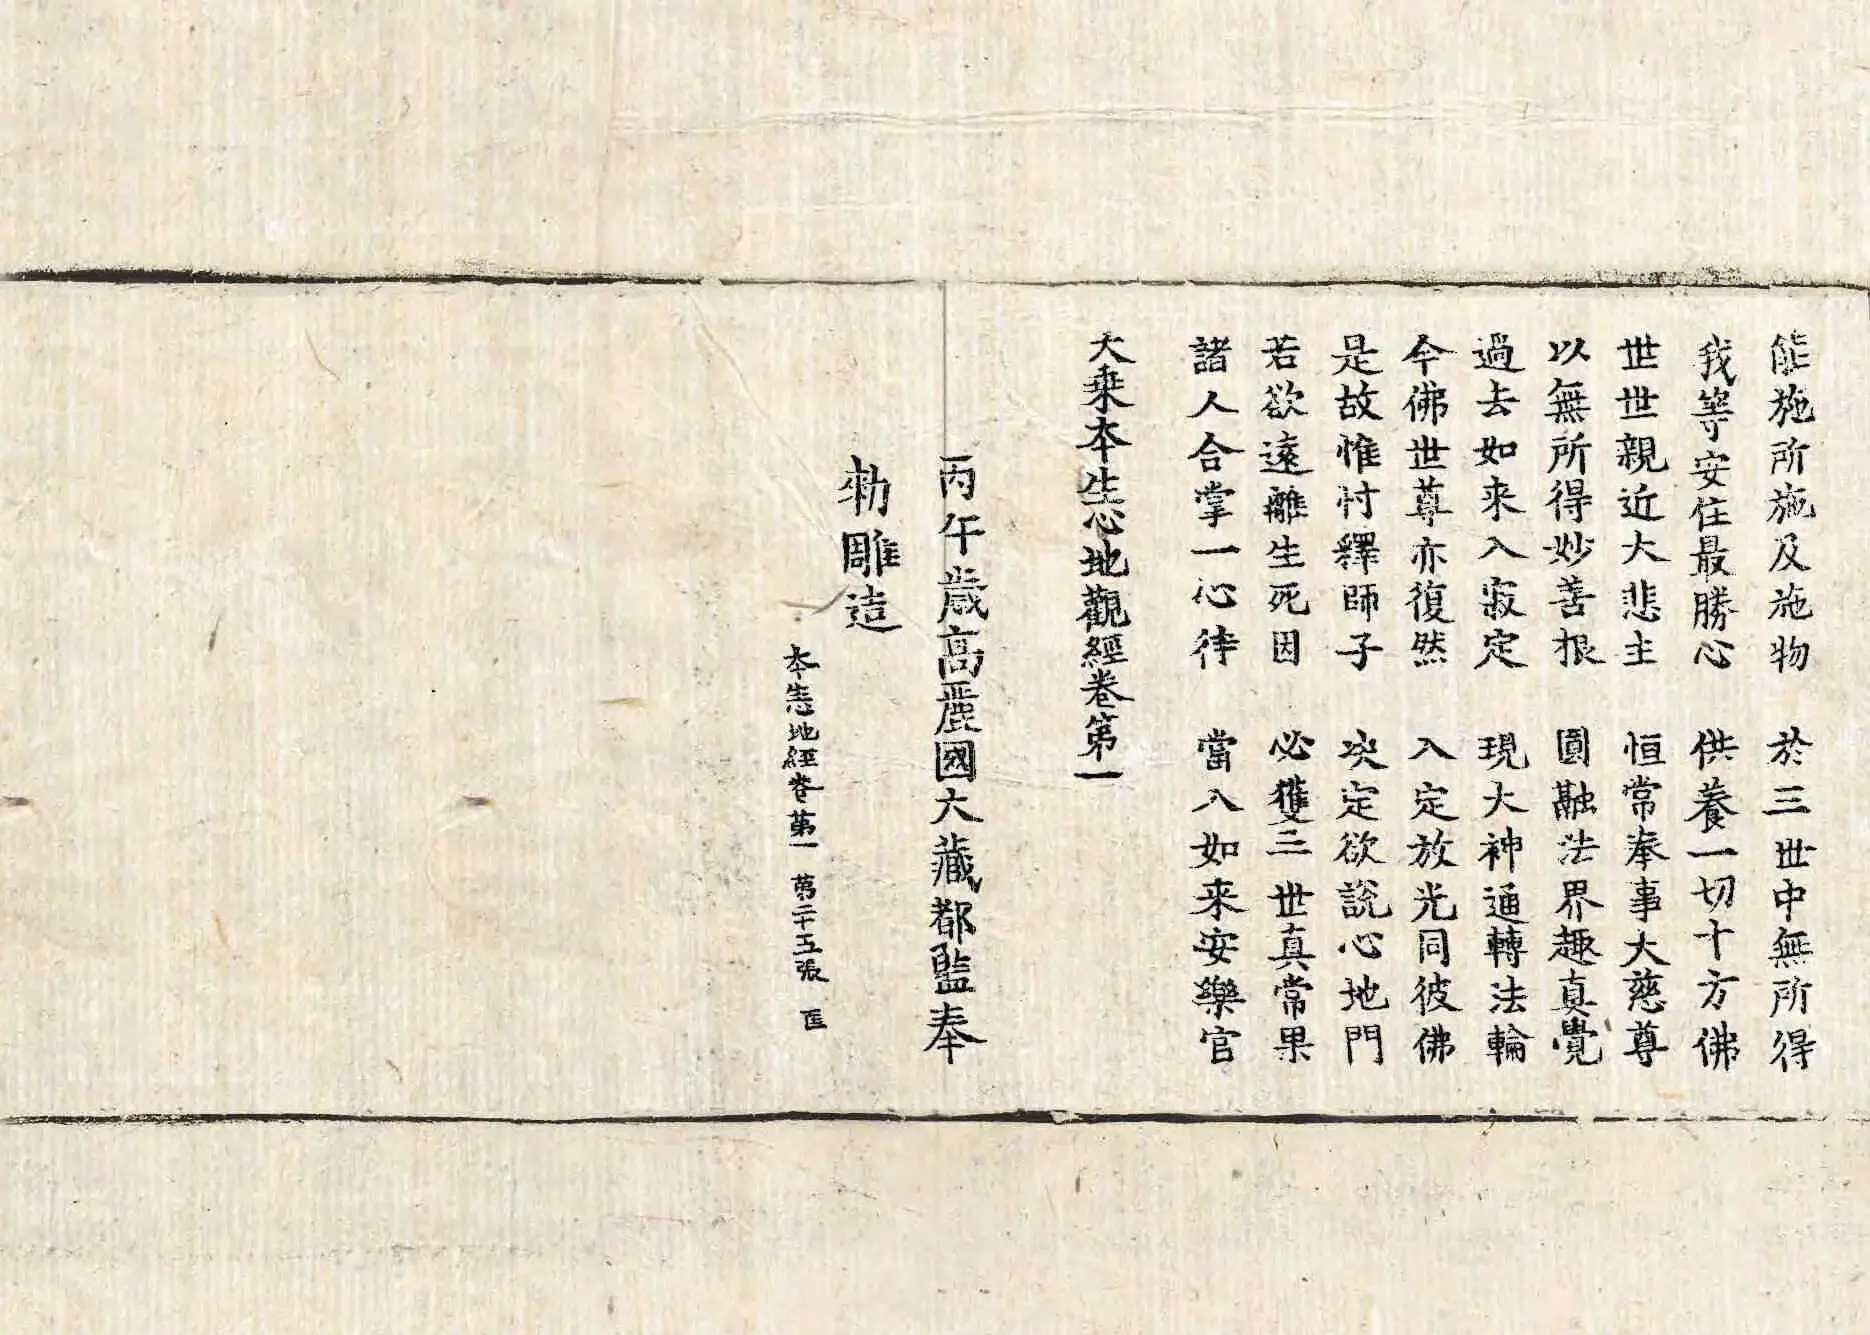 能施所施及施物　於三世中無所得
我等安住最勝心　供養一切十方佛
世世親近大悲主　恒常奉事大慈尊
以無所得妙善根　圓融法界趣真覺
過去如来入寂定　現大神通轉法輪
今佛世尊亦復然　入定放光同彼佛
是故惟忖釋師子　决定欲說心地門
若欲遠離生死因　必獲三世真常果
諸人合掌一心待　當入如来安樂官
大乗本生心地觀經卷第一
丙午歳高麗國大藏都監奉
勑雕造
本生心地經卷第一　第二十五張　匡